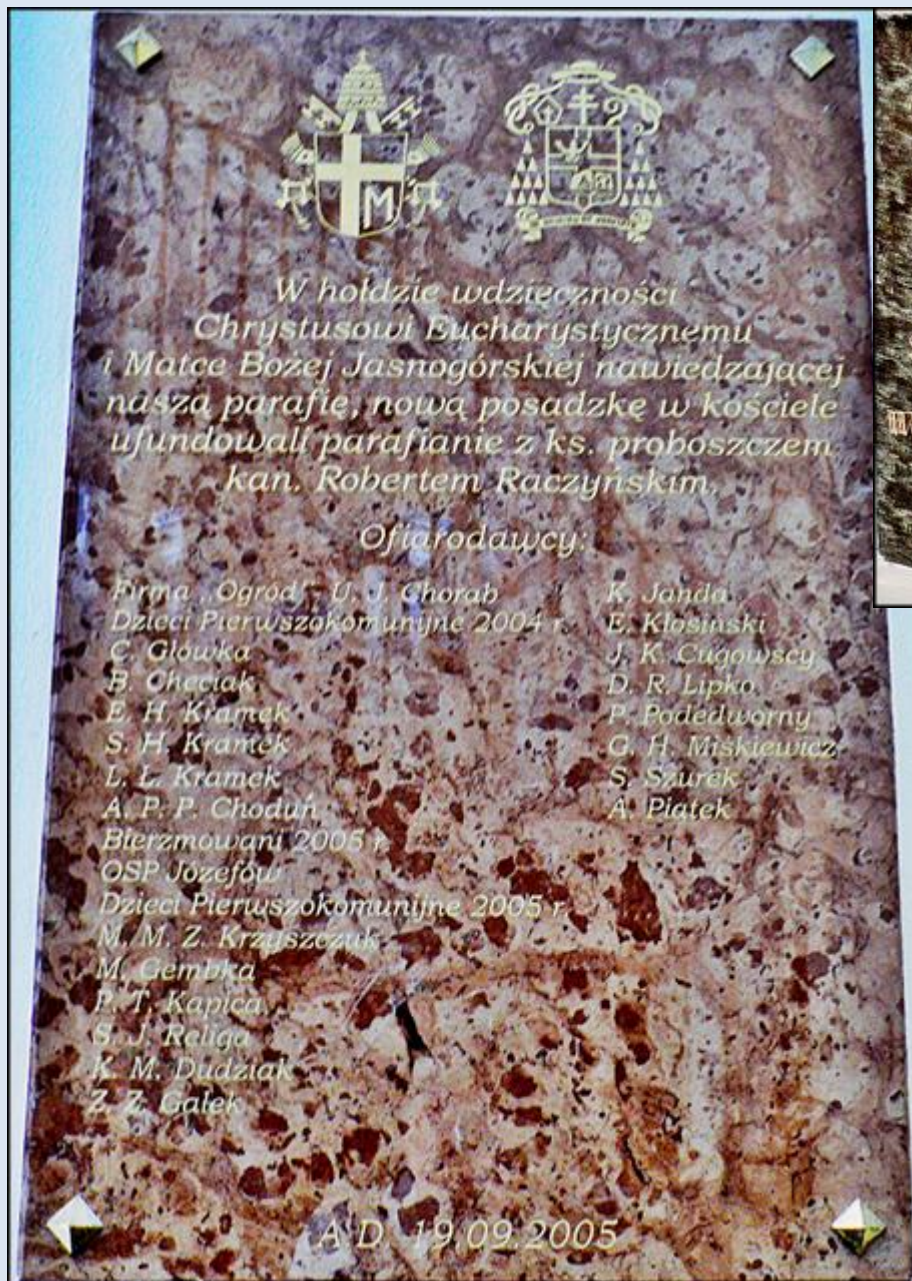 M
W hołdzie wdzięczności
Chrystusowi Eucharystycznemu
i Matce Bożej Jasnogórskiej nawiedzającej
naszą parafię, nową posadzkę w kościele
ufundowali parafianie z ks. proboszczem
kan. Robertem Raczyńskim.
Ofiarodawcy:
Firma „Ogród” U. J. Chorab
Dzieci Pierwszokomunijne 2004 r.
C. Główka
B. Chęciak
E. H. Kramek
S. H. Kramek
L. Ł. Kramek
A. P. P. Choduń
Bierzmowani 2005 r.
OSP Józefów
Dzieci Pierwszokomunijne 2005 r.
M. M. Z. Krzyszczuk
M. Gembka
P. T. Kapica
S. J. Religa
K. M. Dudziak
Z. Z. Gałek
K. Janda
E. Kłosiński
J. K. Cugowscy
D. R. Lipko
P. Podedworny
G. H. Miskiewicz
S. Szurek
A. Piątek
A D 19.09.2005